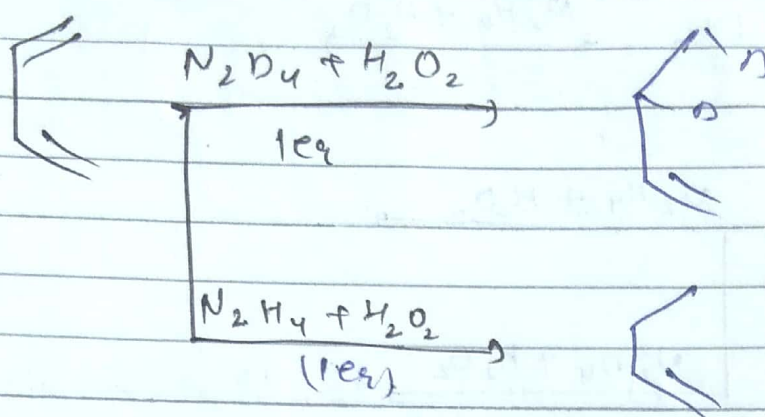 N₂D₄ + H₂O₂
1eq
D
D
N₂H₄ + H₂O₂
(1eq)